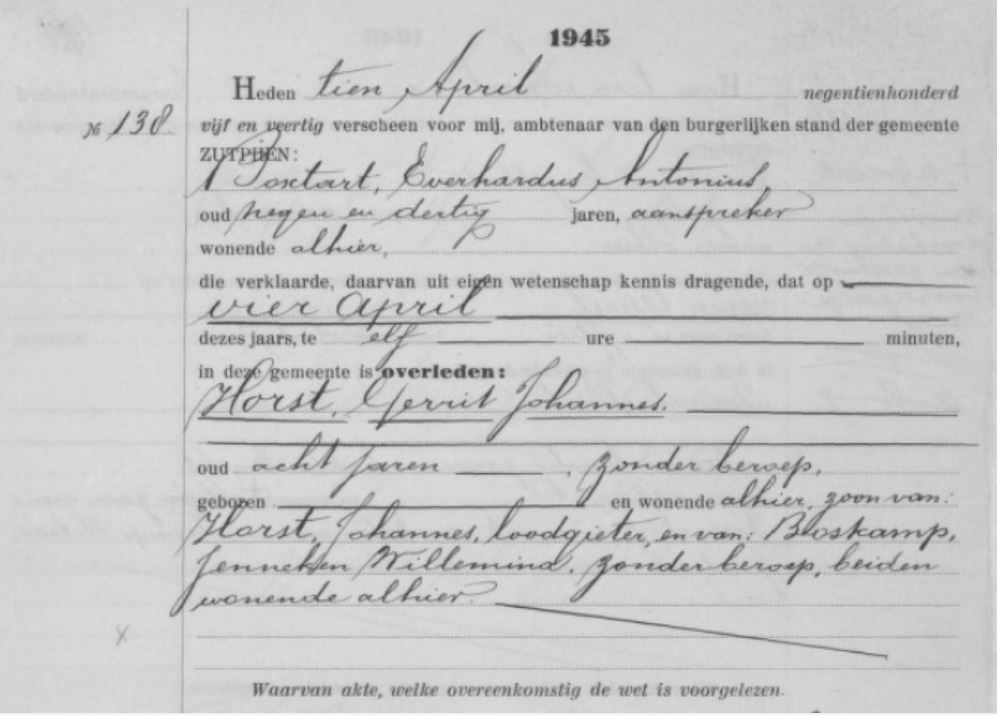 1945
Heden tien April negentienhonderd
№ 138. vijf en veertig verscheen voor mij, ambtenaar van den burgerlijken stand der gemeente
ZUTPHEN:
Boxtart, Everhardus Antonius,
oud negen en dertig jaren, aanspreker
wonende alhier,
die verklaarde, daarvan uit eigen wetenschap kennis dragende, dat op
vier April
dezes jaars, te elf ure minuten,
in deze gemeente is overleden:
Horst, Gerrit Johannes.
oud acht jaren, zonder beroep,
geboren en wonende alhier, zoon van:
Horst, Johannes, loodgieter, en van: Boskamp,
Jenneken Willemina, zonder beroep, beiden
wonende alhier.
Waarvan akte, welke overeenkomstig de wet is voorgelezen.